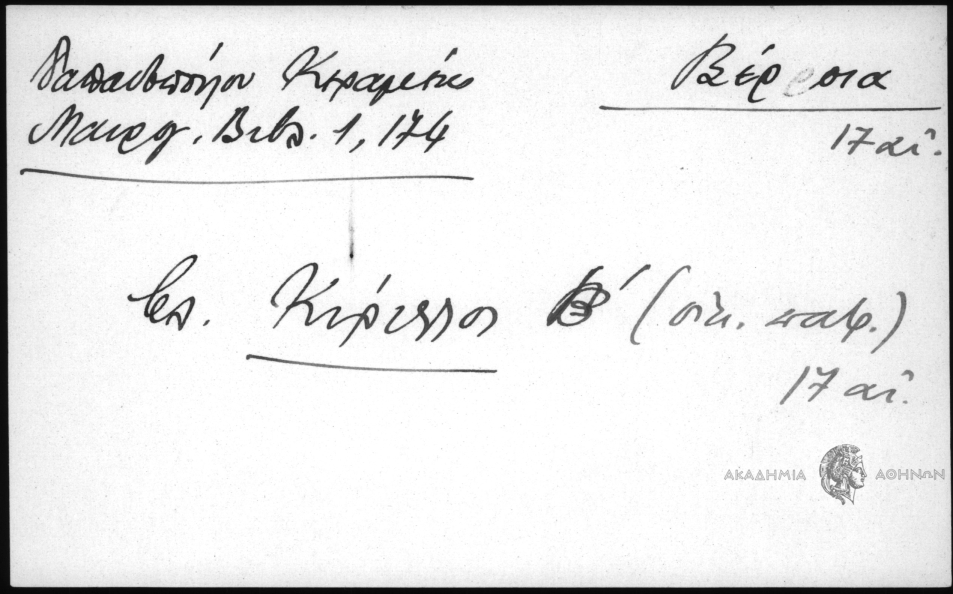 Παπαδοπούλου Κεραμέως
Μαυρογ. Βιβλ. 1, 174
Βέρροια
17 αἰ.
βλ. Κύριλλος Β´ (οἰκ. πατρ.)
17 αἰ.
ΑΚΑΔΗΜΙΑ ΑΘΗΝΩΝ